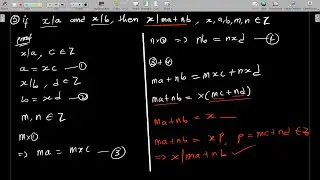 ② if x/a and x/b, then x/ma+nb, x,a,b,m,n ∈ Z
proof
x/a, c ∈ Z
a = xc —①
x/b, d ∈ Z
b = xd —②
m, n ∈ Z
m×①
⇒ ma = mxc —③
n×② ⇒ nb = nxd —④
③+④
ma+nb = mxc+nxd
ma+nb = x(mc+nd)
ma+nb = x
ma+nb = xP, P=mc+nd ∈ Z
⇒ x/ma+nb ✓